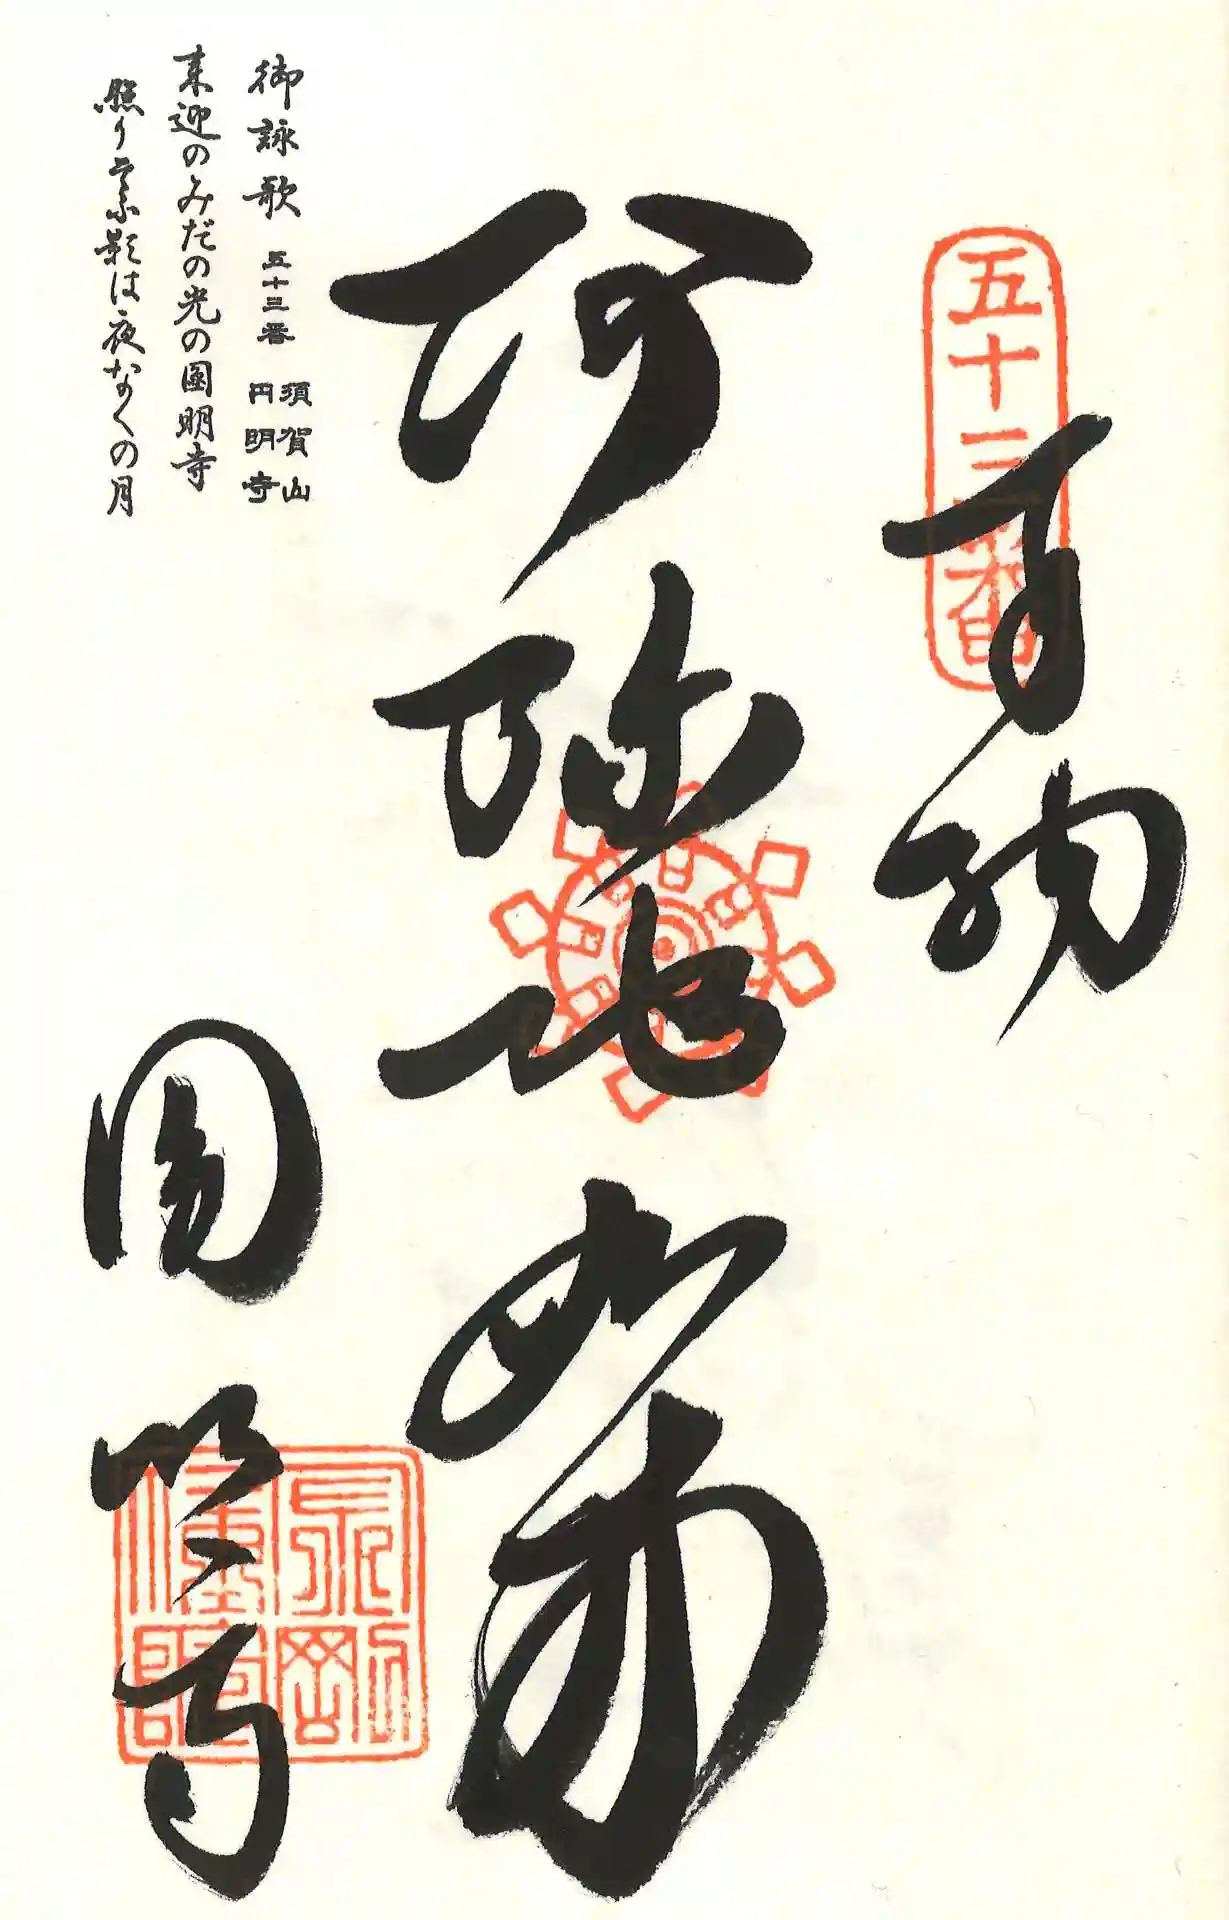 五十三番
奉納
阿弥陀如来
圓明寺
御詠歌 五十三番 須賀山 円明寺
来迎のみだの光の圓明寺
照り添う影は夜なくの月